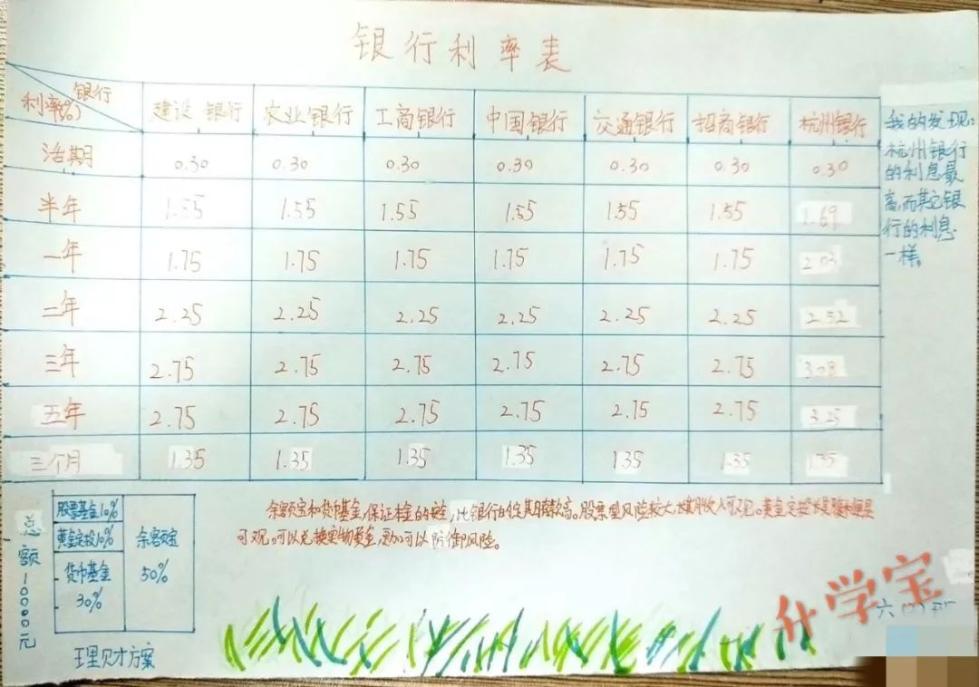 银行利率表
银行
利率(%)
建设银行 农业银行 工商银行 中国银行 交通银行 招商银行 杭州银行
活期 0.30 0.30 0.30 0.30 0.30 0.30 0.30
半年 1.55 1.55 1.55 1.55 1.55 1.55 1.69
一年 1.75 1.75 1.75 1.75 1.75 1.75 2.03
二年 2.25 2.25 2.25 2.25 2.25 2.25 2.52
三年 2.75 2.75 2.75 2.75 2.75 2.75 3.03
五年 2.75 2.75 2.75 2.75 2.75 2.75 3.25
三个月 1.35 1.35 1.35 1.35 1.35 1.35
我的发现:
杭州银行
的利息最
高,而其它银
行的利息
一样。
总额10000元
股票基金10%
黄金定投10%
货币基金
30%
余额宝
50%
理财方案
余额宝和货币基金,保证
可观。可以兑换实物黄金,可以防御风险。
升学宝
六